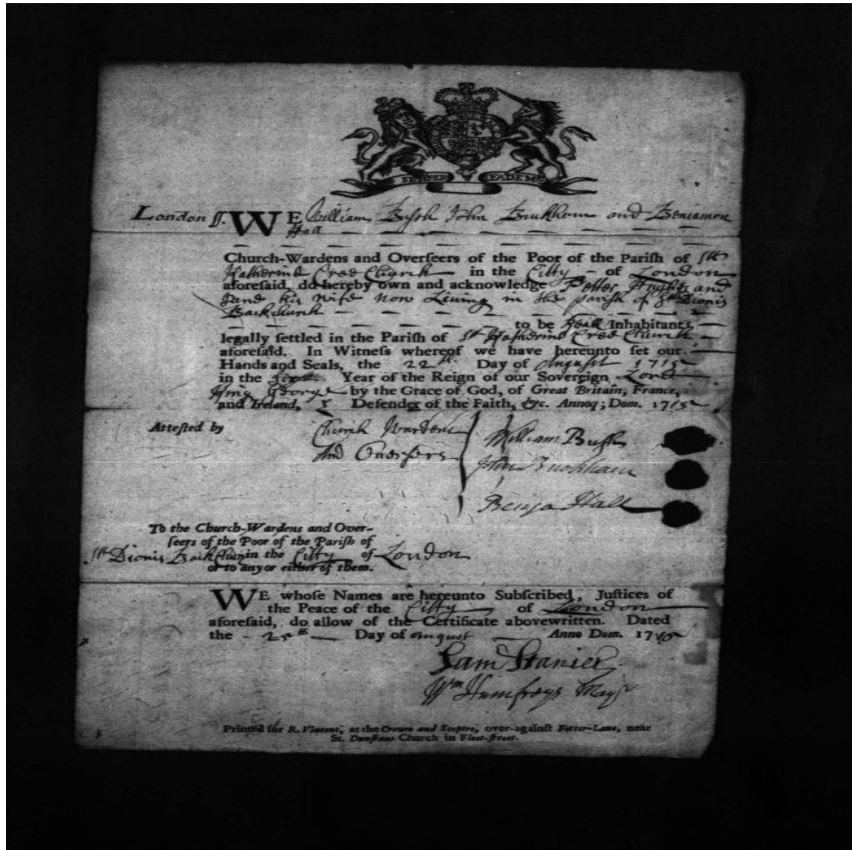 SEMPER EADEM
London ss. WE William Bush John Buckham and Beniamen
Hall
Church-Wardens and Overseers of the Poor of the Parish of St
Katherine Cree Church in the Citty of London
aforesaid, do hereby own and acknowledge Petter and
Jane his wife now Leuing in the parish of St Dionis
Backchurch
to be Inhabitants
legally settled in the Parish of St Katherine Cree Church
aforesaid. In Witness whereof we have hereunto set our
Hands and Seals, the 22 Day of August 1715
in the Year of the Reign of our Sovereign Lord
King George by the Grace of God, of Great Britain, France,
and Ireland, Defender of the Faith, &c. Annoq; Dom. 1715
Attested by Church Wardens William Bush
And Ouerseers John Buckham
Benja Hall
To the Church-Wardens and Over-
seers of the Poor of the Parish of
St Dionis Backchurch in the Citty of London
or to any or either of them.
WE whose Names are hereunto Subscribed, Justices of
the Peace of the Citty of London
aforesaid, do allow of the Certificate abovewritten. Dated
the Day of August Anno Dom. 1715
Sam Stanier
Wm Humfreys Mayr
Printed for R. Vincent, at the Crown and Sceptre, over-against Fetter-Lane, near
St. Dunstans Church in Fleet-street.